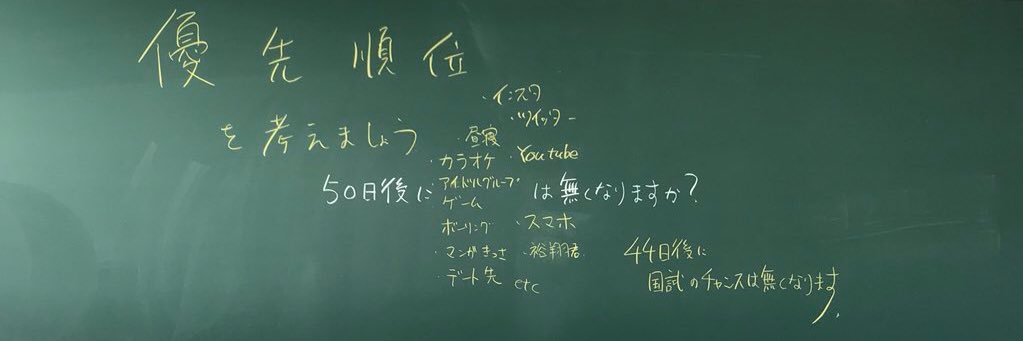 優先順位
を考えましょう
50日後に
・インスタ
・ツイッター
・昼寝
・カラオケ
・Youtube
アイドルグループ
ゲーム
ボーリング
・スマホ
・マンガきっさ
・裕翔君
・デート先
etc
は無くなりますか?
44日後に
国試のチャンスは無くなります